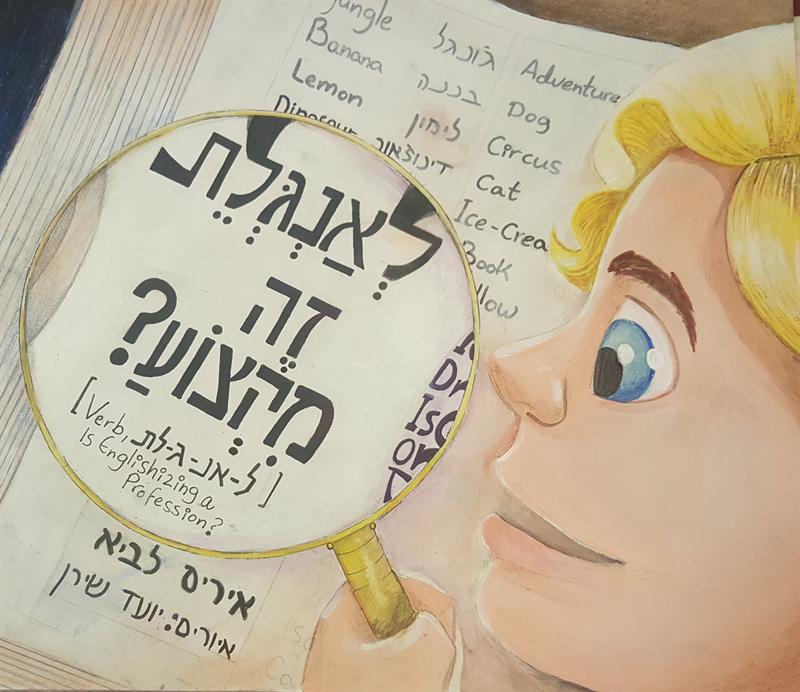 Jungle ג'ונגל
Banana בננה
Lemon לימון
Dinosaur דינוזאור
Adventure
Dog
Circus
Cat
Ice-Crea
Book
llow
לְאַנְגְלֵת
זֶה
מִקְצוֹעַ?
[Verb, ל-אנ-ג-לת]
Is Englishizing a
Profession?
איריס לביא
איורים: יועד שירן